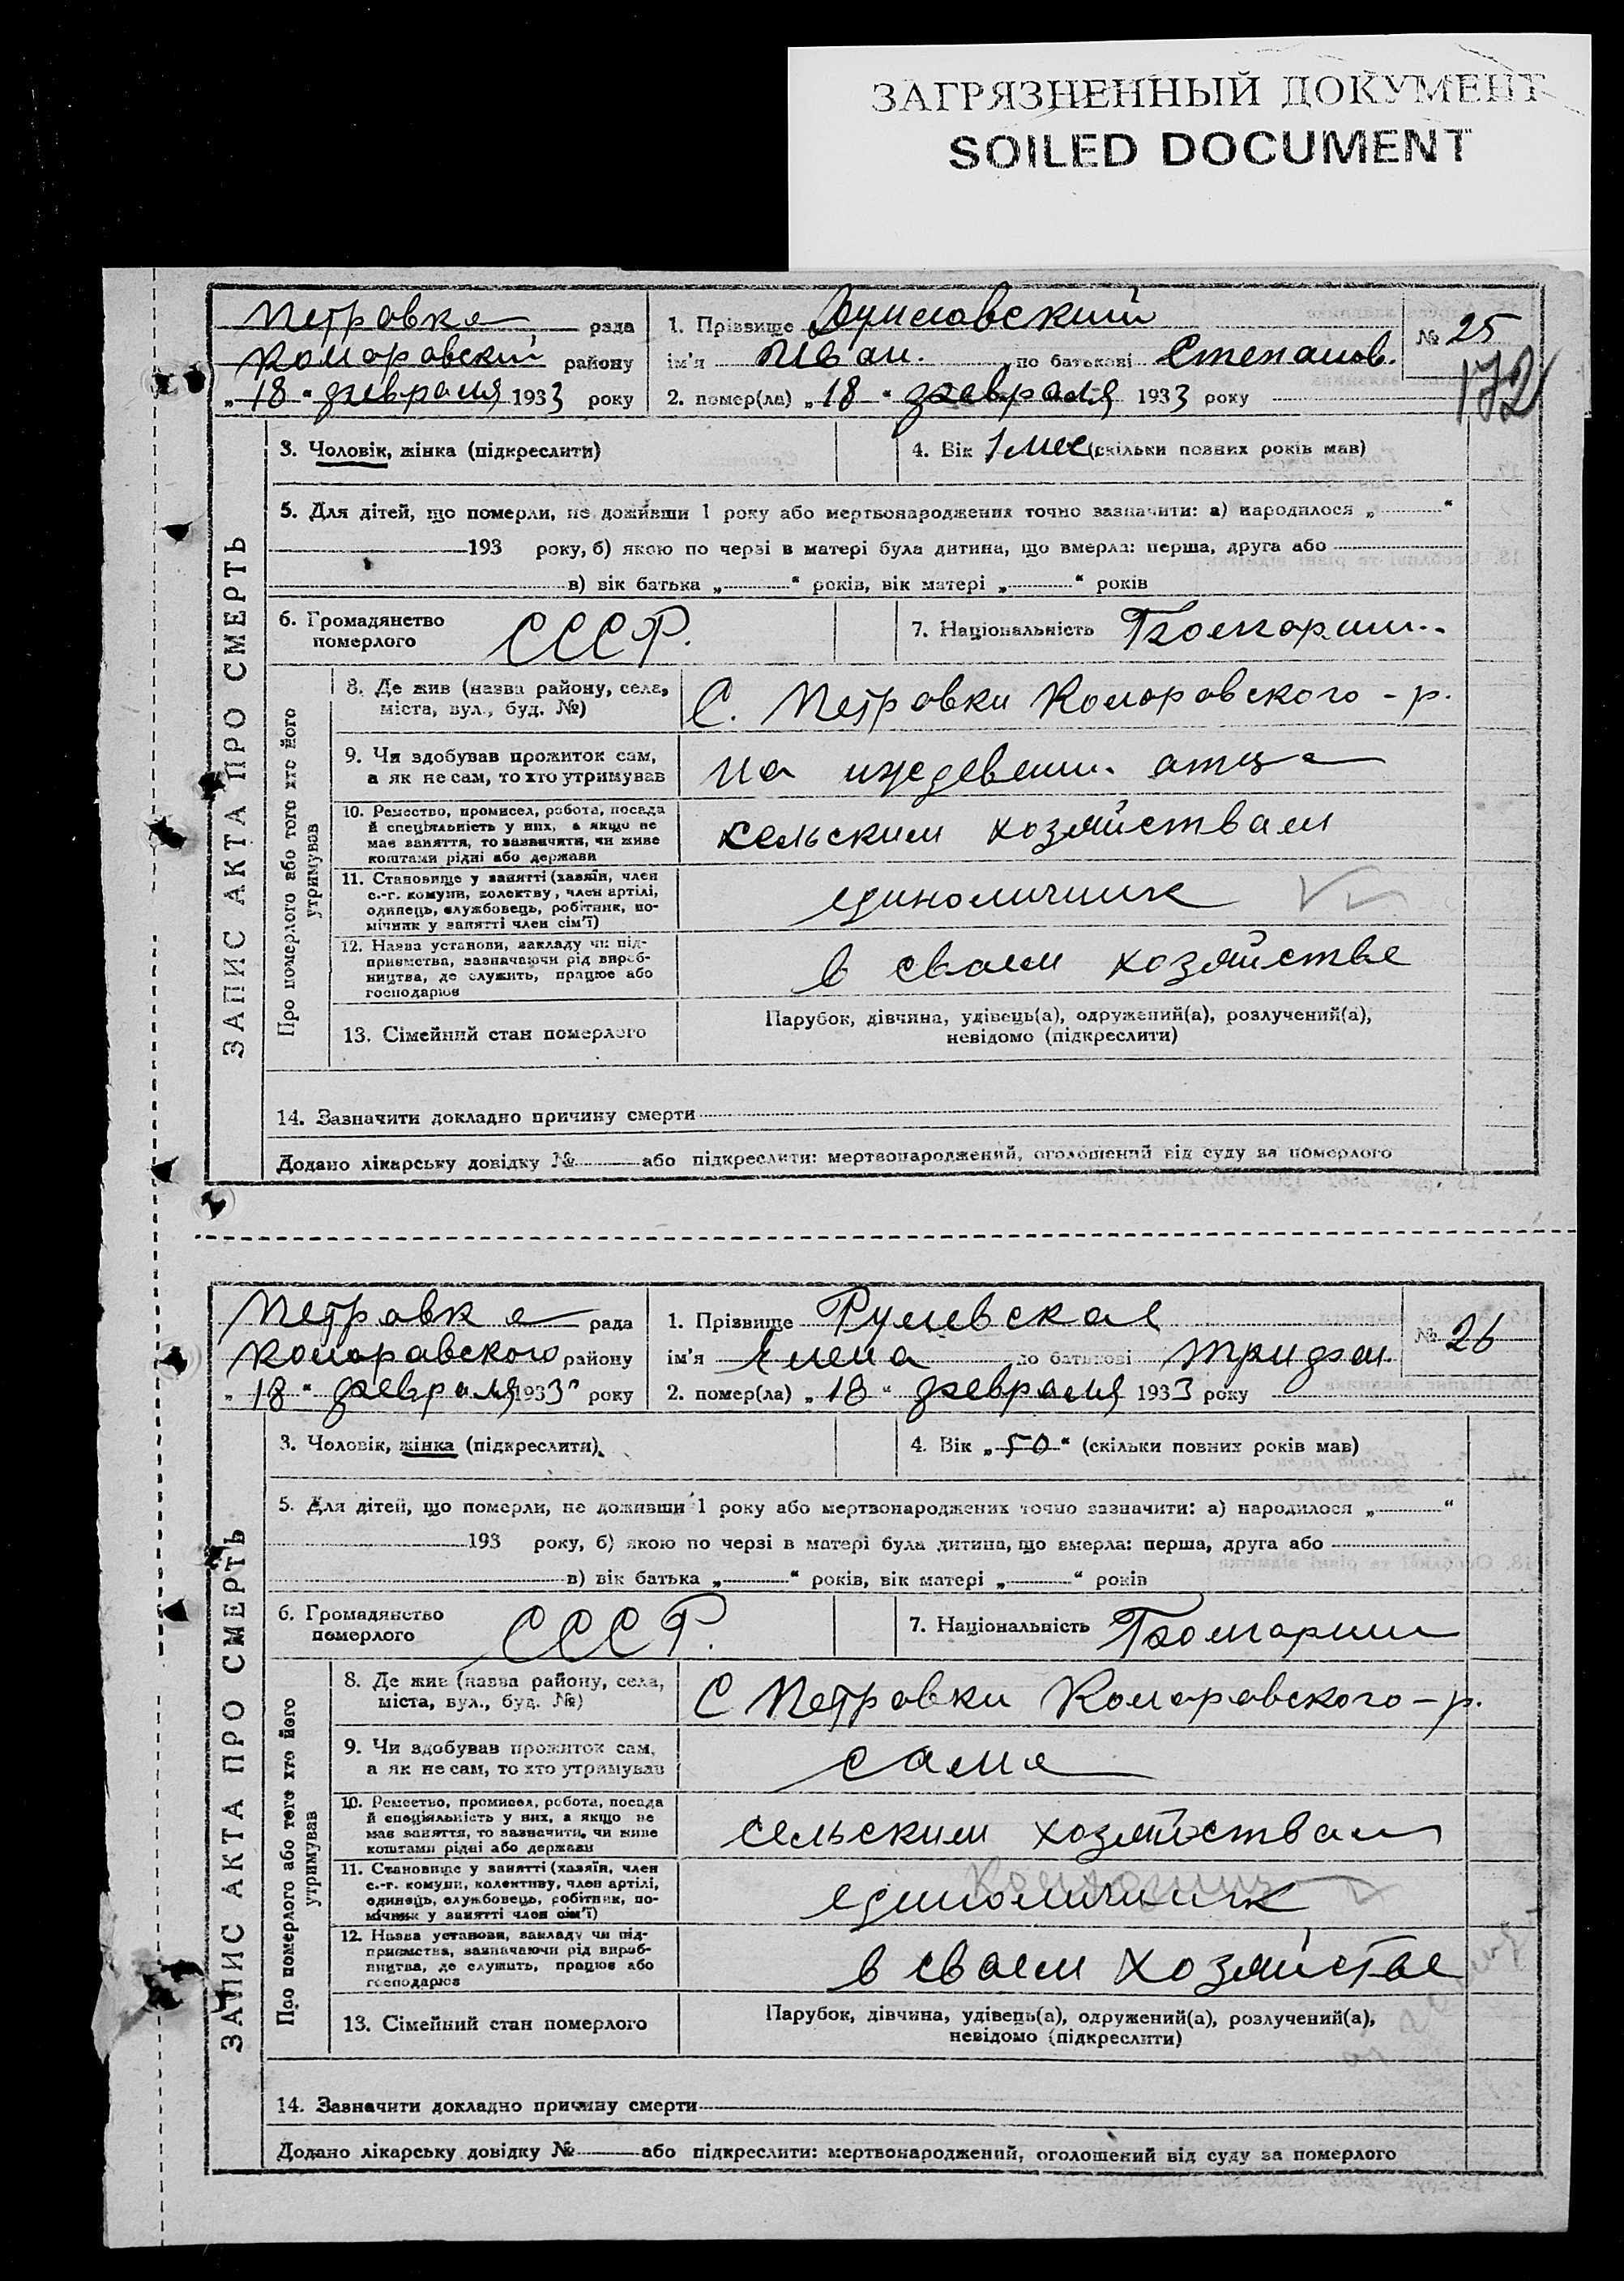 ЗАГРЯЗНЕННЫЙ ДОКУМЕНТ
SOILED DOCUMENT
ЗАПИС АКТА ПРО СМЕРТЬ
Петровка рада
Комаровский району
„18“ февраля 1933 року
1. Прізвище
№ 25
ім'я Иван. по батькові Степанов.
172
2. помер(ла) „18“ февраля 1933 року
3. Чоловік, жінка (підкреслити)
4. Вік 1 мес (скільки повних років мав)
5. Для дітей, що померли, не доживши 1 року або мертвонароджених точно зазначити: а) народилося „ “
193 року, б) якою по черзі в матері була дитина, що вмерла: перша, друга або
в) вік батька „ “ років, вік матері „ “ років
6. Громадянство померлого СССР.
7. Національність
Про померлого або того хто його утримував
8. Де жив (назва району, села,
міста, вул., буд. №)
С. Петровки Комаровского - р.
9. Чи здобував прожиток сам,
а як не сам, то хто утримував
на иждевени. атца
10. Ремество, промисел, робота, посада
й спеціяльність у них, а якщо не
має заняття, то зазначити, чи живе
коштами рідні або держави
сельским хозяйствам
11. Становище у занятті (хазяїн, член
с.-г. комуни, колективу, член артілі,
одинець, службовець, робітник, по-
мічник у занятті член сім'ї)
единоличник
12. Назва установи, закладу чи під-
приємства, зазначаючи рід вироб-
ництва, де служить, працює або
господарює
в сваем хозяйстве
13. Сімейний стан померлого
Парубок, дівчина, удівець(а), одружений(а), розлучений(а),
невідомо (підкреслити)
14. Зазначити докладно причину смерти
Додано лікарську довідку № або підкреслити: мертвонароджений, оголошений від суду за померлого
ЗАПИС АКТА ПРО СМЕРТЬ
Петровка рада
Комаравского району
„18“ февраля 1933 року
1. Прізвище Румевская
№ 26
ім'я Елена по батькові
2. помер(ла) „18“ февраля 1933 року
3. Чоловік, жінка (підкреслити)
4. Вік „50“ (скільки повних років мав)
5. Для дітей, що померли, не доживши 1 року або мертвонароджених точно зазначити: а) народилося „ “
193 року, б) якою по черзі в матері була дитина, що вмерла: перша, друга або
в) вік батька „ “ років, вік матері „ “ років
6. Громадянство померлого СССР.
7. Національність
Про померлого або того хто його утримував
8. Де жив (назва району, села,
міста, вул., буд. №)
С Петровки Комаравского - р.
9. Чи здобував прожиток сам,
а як не сам, то хто утримував
сама
10. Ремество, промисел, робота, посада
й спеціяльність у них, а якщо не
має заняття, то зазначити, чи живе
коштами рідні або держави
сельским хозяйствам
11. Становище у занятті (хазяїн, член
с.-г. комуни, колективу, член артілі,
одинець, службовець, робітник, по-
мічник у занятті член сім'ї)
единоличник
12. Назва установи, закладу чи під-
приємства, зазначаючи рід вироб-
ництва, де служить, працює або
господарює
в сваем хозяйстве
13. Сімейний стан померлого
Парубок, дівчина, удівець(а), одружений(а), розлучений(а),
невідомо (підкреслити)
14. Зазначити докладно причину смерти
Додано лікарську довідку № або підкреслити: мертвонароджений, оголошений від суду за померлого